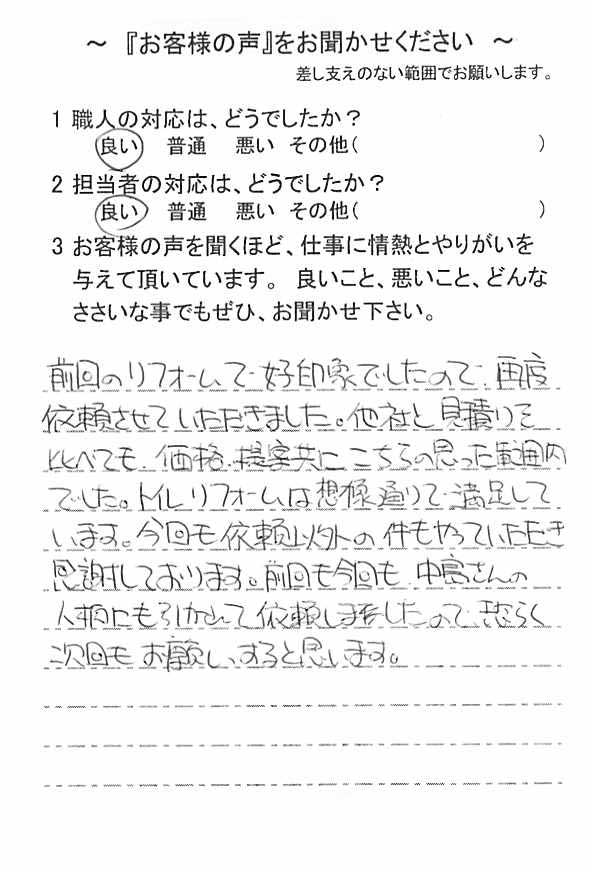 ～ 『お客様の声』をお聞かせください ～
差し支えのない範囲でお願いします。
1 職人の対応は、どうでしたか？
良い 普通 悪い その他( )
2 担当者の対応は、どうでしたか？
良い 普通 悪い その他( )
3 お客様の声を聞くほど、仕事に情熱とやりがいを
与えて頂いています。 良いこと、悪いこと、どんな
ささいな事でもぜひ、お聞かせ下さい。
前回のリフォームで好印象でしたので、再度
依頼させていただきました。他社と見積りを
比べても、価格、提案共にこちらの思った範囲内
でした。トイレリフォームは想像通りで満足して
います。今回も依頼以外の件もやっていただき
感謝しております。前回も今回も 中島さんの
人柄にも引かれて依頼しましたので、恐らく
次回もお願いすると思います。